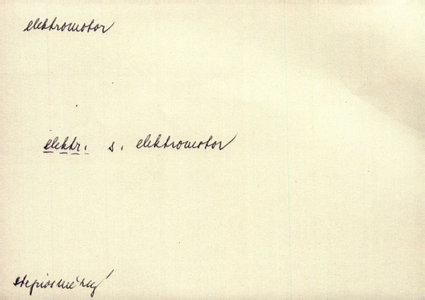 elektromotor
elektr. s. elektromotor
stejnosměrný